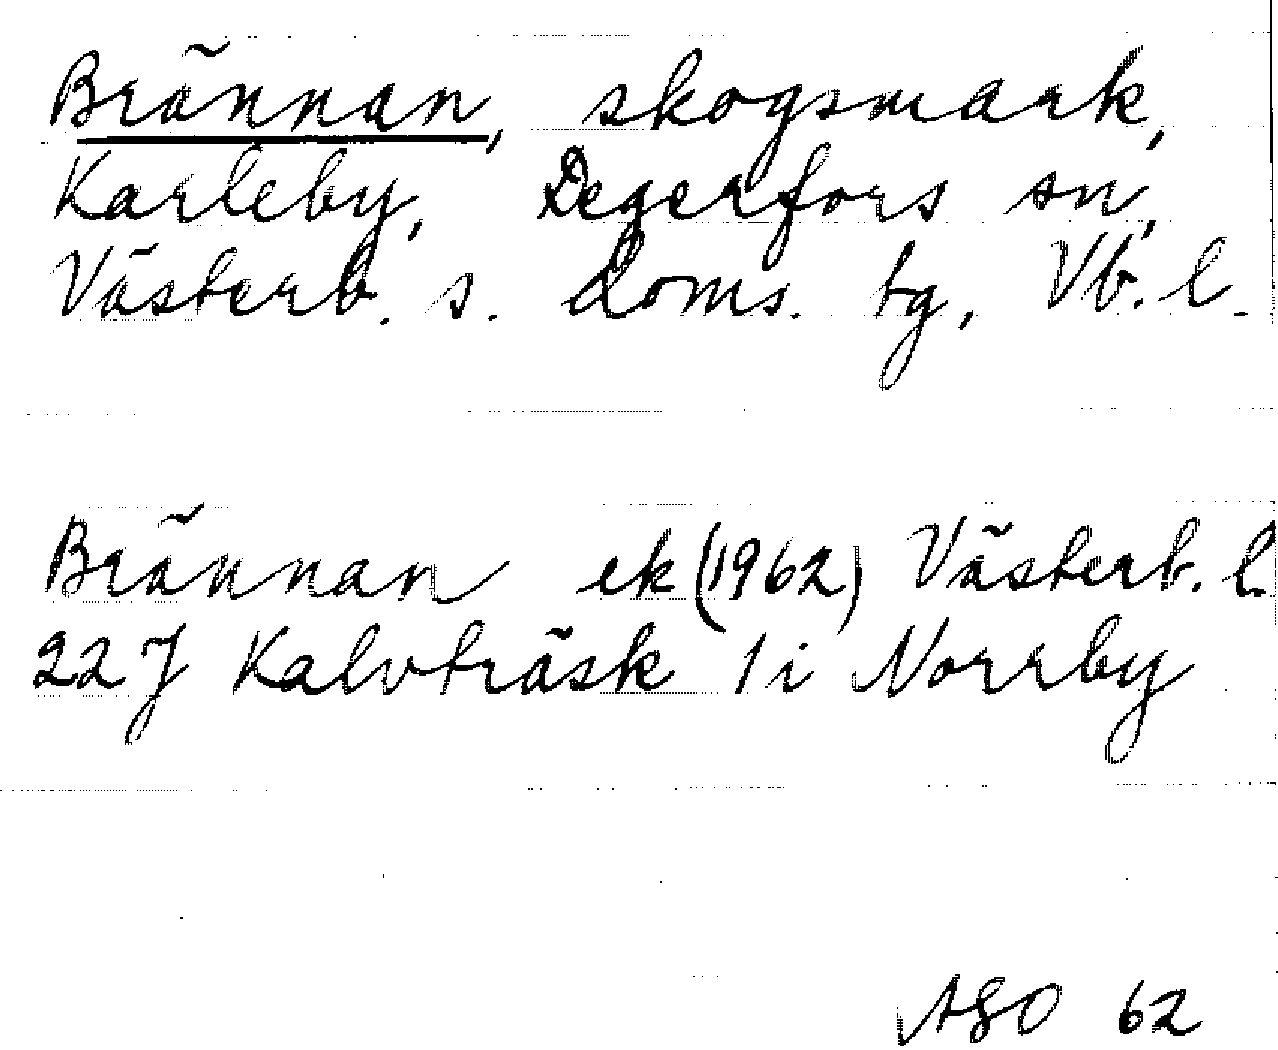 Brännan, skogsmark,
Karleby, Degerfors sn,
Västerb. s. doms. tg, Vb. l.
Brännan ek (1962) Västerb. l.
22 J Kalvträsk 1 i Norrby
ASO 62